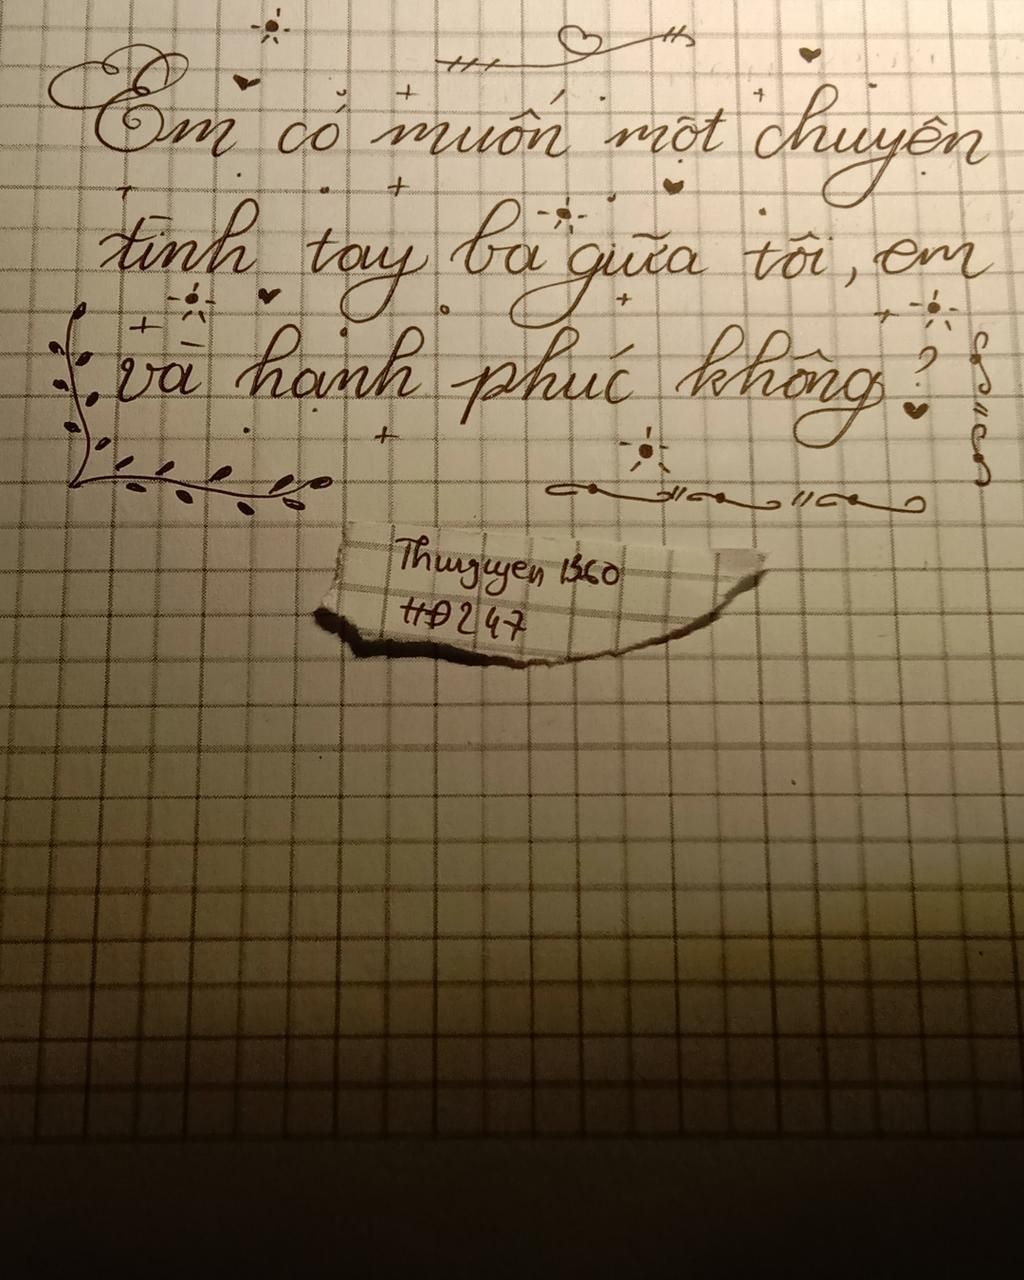 Em có muốn một chuyện
tình tay ba giữa tôi, em
và hạnh phúc không?
Thuyuyen 1360
HĐ247